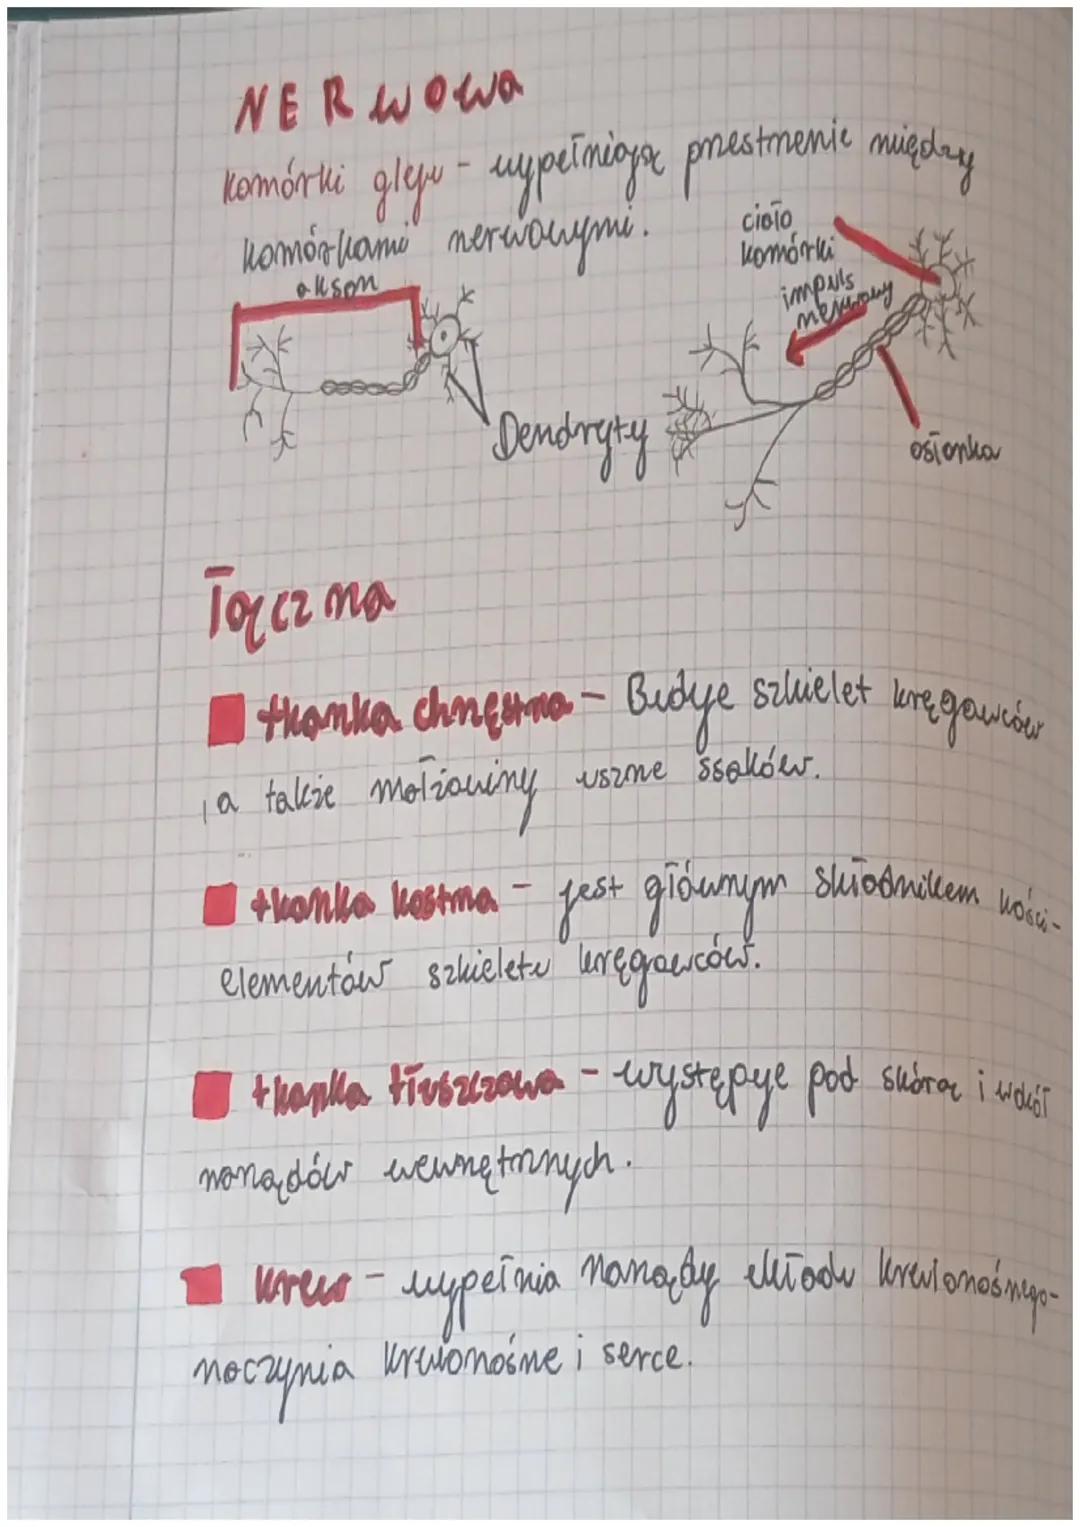 NERWOWA
komórki gleju - wypełniają przestrzenie między
komórkami nerwowymi.
akson
ciało
komórki
impuls
nerwowy
Dendryty
osłonka
Łączna
tkanka chrzęstna - Buduje szkielet kręgowców
, a także małżowiny uszne ssaków.
tkanka kostna - jest głównym składnikem kości -
elementów szkieletu kręgowców.
tkanka tłuszczowa - występuje pod skórą i wokół
narządów wewnętrznych.
krew - wypełnia narządy układu krwionośnego -
naczynia krwionośne i serce.